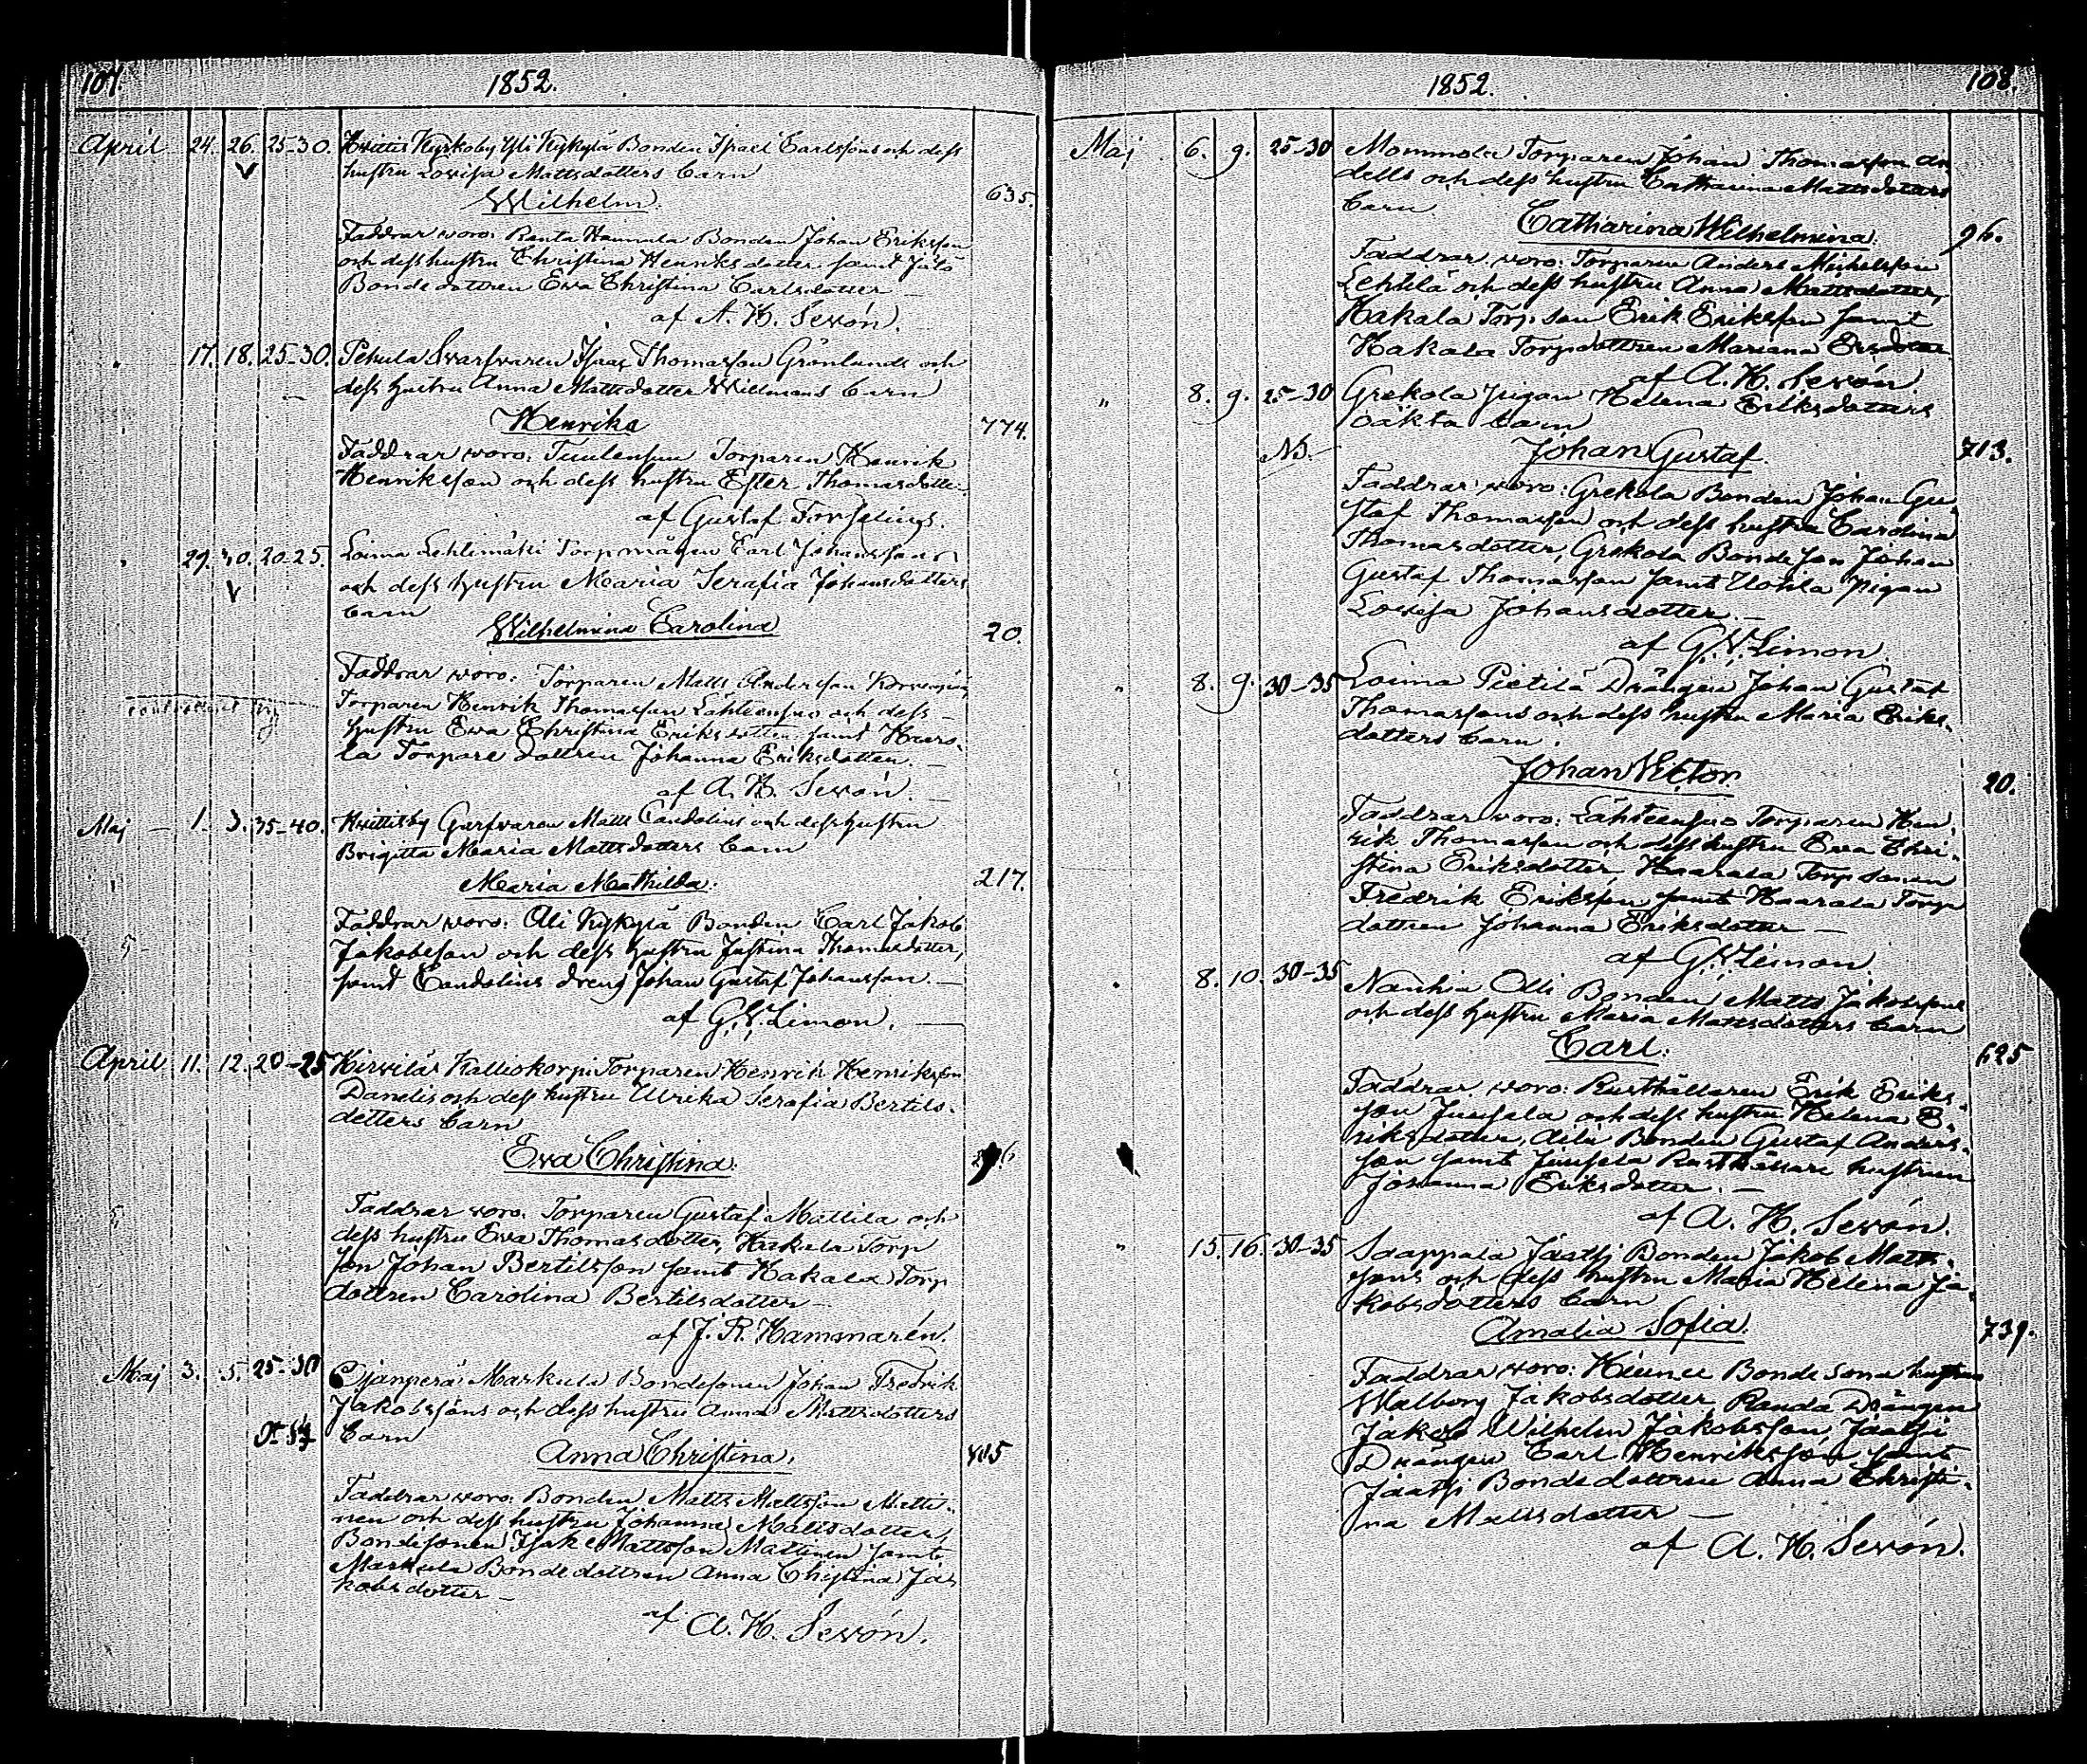 107. 1852.
April 24. 26. 25-30. Kyrkoby Yli Kykylä Bonden Israel Carlssons och dess
hustru Lovisa Mattsdotters barn
Wilhelm. 635.
Faddrar woro: Bonden Johan Eriksson
och dess hustru Christina Henriksdotter samt
Bondedottren Eva Christina Carlsdotter
af A. H. Sevón.
" 17. 18. 25-30. Pekula Isaac Thomasson Grönlunds och
dess hustru Anna Mattsdotter Willmans barn
Henrika 774.
Faddrar woro: Torparen Henrik
Henriksson och dess hustru Ester Thomasdotter
af Gustaf
" 29. 30. 20-25. Loima Lehtimäki Torpmågen Carl Johanssons
och dess hustru Maria Serafia Johansdotters
barn
Wilhelmina Carolina 20.
Faddrar woro: Torparen Matts Andersson
Torparen Henrik Thomasson Lähteensuo och dess
hustru Eva Christina Eriksdotter samt Haara-
la Torparedottren Johanna Eriksdotter.
af A. H. Sevón.
Maj 1. 3. 35-40. Garfvaren Matts Candolins och dess hustru
Brigitta Maria Mattsdotters barn
Maria Mathilda. 217.
Faddrar woro: Kykylä Bonden Carl Jakob
Jakobsson och dess hustru Justina Thomasdotter,
samt Candolins dreng Johan Gustaf Johansson.
af G. V. Limon.
April 11. 12. 20-25 Kalliokorpi Torparen Henrik Henriksson
och dess hustru Ulrika Serafia Bertils-
dotters barn
Eva Christina.
Faddrar woro: Torparen Gustaf Mattila och
dess hustru Eva Thomasdotter, Hakala Torp
son Johan Bertilsson samt Hakala Torp
dottren Carolina Bertilsdotter
af J. R. Hammarén.
Maj 3. 5. 25-30 Markula Bondesonen Johan Fredrik
Jakobssons och dess hustru Anna Mattsdotters
barn
Anna Christina.
Faddrar woro: Bonden Matts Mattsson Matti-
nen och dess hustru Johanna Mattsdotter,
Bondesonen Isak Mattsson Mattinen samt
Markula Bondedottren Anna Christina Ja-
kobsdotter
af A. H. Sevón.
1852. 108.
Maj 6. 9. 25-30 Mommola Torparen Johan Thomasson An-
dells och dess hustru Catharina Mattsdotters
barn
Catharina Wilhelmina. 96.
Faddrar woro: Torparen Anders Michelsson
Lehtilä och dess hustru Anna Mattsdotter,
Hakala Torp. son Erik Eriksson samt
Hakala Torpdottren Mariana
af A. H. Sevón
" 8. 9. 25-30 Grekola Pigan Helena Eriksdotters
oäkta barn
Johan Gustaf. 713.
Faddrar woro: Grekola Bonden Johan Gu-
staf Thomasson och dess hustru Carolina
Thomasdotter, Grekola Bondeson Johan
Gustaf Thomasson samt Uohla Pigan
Lovisa Johansdotter.
af G. V. Limon
" 8. 9. 30-35 Loima Pietilä Drängen Johan Gustaf
Thomassons och dess hustru Maria Eriks-
dotters barn.
Johan Victor. 20.
Faddrar woro: Lähteensuo Torparen Hen-
rik Thomasson och dess hustru Eva Chri-
stina Eriksdotter, Haarala Torpsonen
Fredrik Eriksson samt Haarala Torp
dottren Johanna Eriksdotter
af G. V. Limon.
" 8. 10. 30-35 Nanhia Olli Bonden Matts Jakobssons
och dess hustru Maria Mattsdotters barn
Carl. 625
Faddrar woro: Rusthållaren Erik Eriks-
son Junsela och dess hustru Helena E-
riksdotter, Bonden Gustaf Anders-
son samt Junsela Rusthållare hustrun
Johanna Eriksdotter.
af A. H. Sevón.
" 15. 16. 30-35 Sappala Jaatsi Bonden Jakob Matts-
sons och dess hustru Maria Helena Ja-
kobsdotters barn
Amalia Sofia. 739.
Faddrar woro: Bondesons hustru
Walborg Jakobsdotter, Drängen
Jakob Wilhelm Jakobsson, Jaatsi
Drängen Carl Henriksson samt
Jaatsi Bondedottren Anna Christi-
na Mattsdotter
af A. H. Sevón.